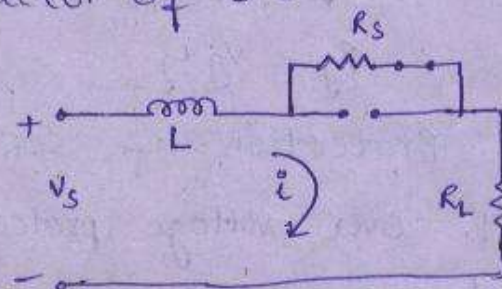 of
Rs
+
L
Vs
i
RL
-